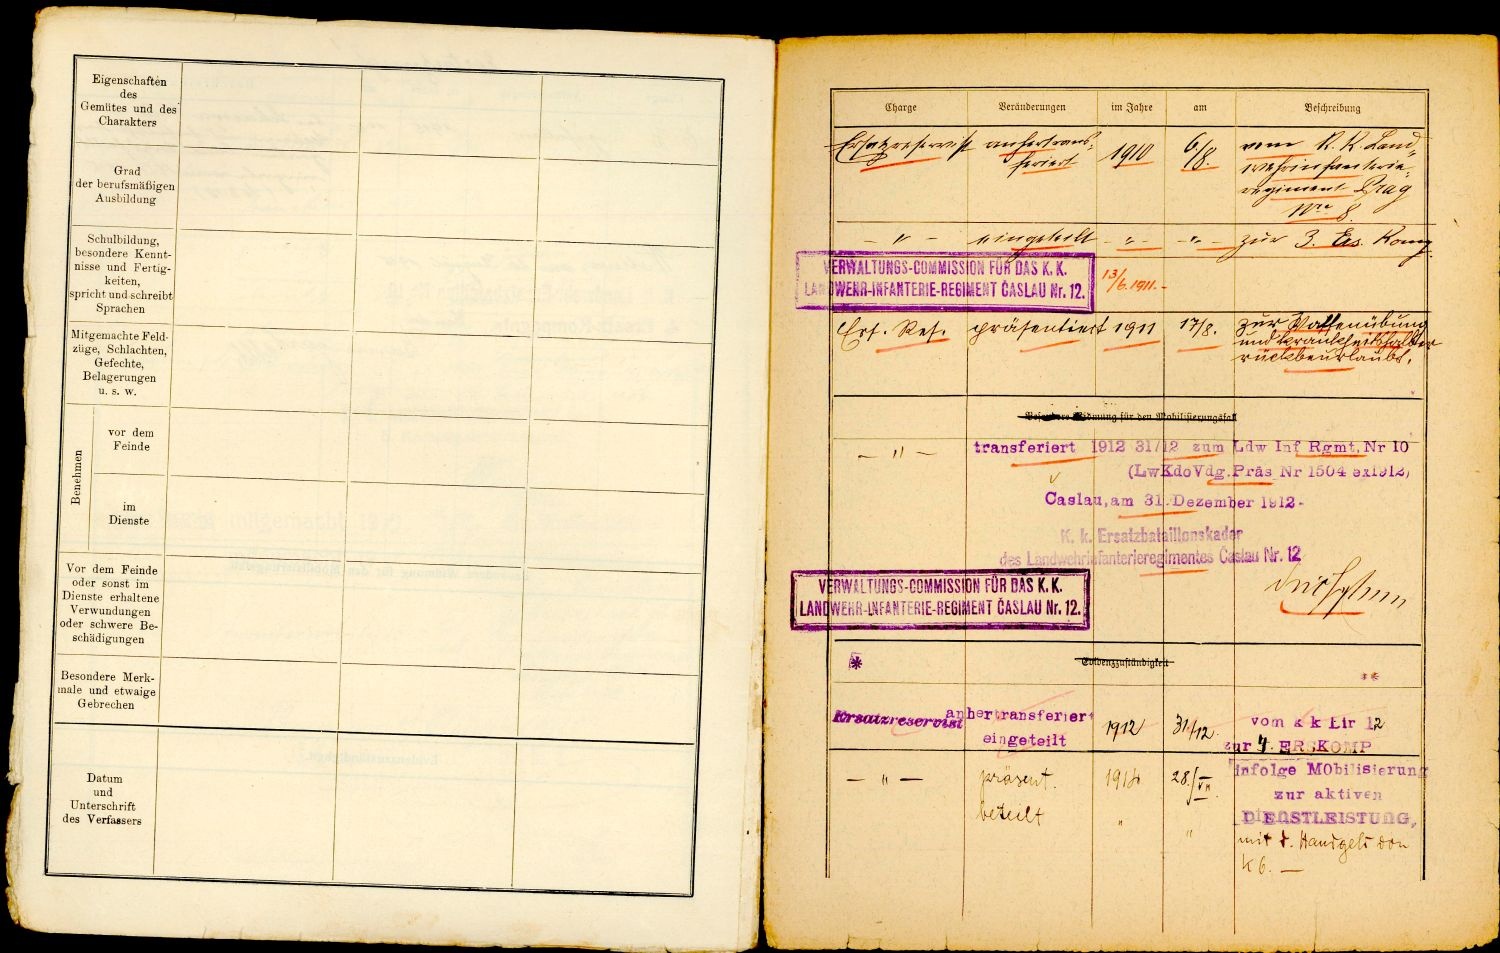 Eigenschaften
des
Gemütes und des
Charakters
Grad
der berufsmäßigen
Ausbildung
Schulbildung,
besondere Kennt-
nisse und Fertig-
keiten,
spricht und schreibt
Sprachen
Mitgemachte Feld-
züge, Schlachten,
Gefechte,
Belagerungen
u. s. w.
Benehmen
vor dem
Feinde
im
Dienste
Vor dem Feinde
oder sonst im
Dienste erhaltene
Verwundungen
oder schwere Be-
schädigungen
Besondere Merk-
male und etwaige
Gebrechen
Datum
und
Unterschrift
des Verfassers
Charge Veränderungen im Jahre am Beschreibung
Ersatzreservist anhertrans- 1910 6/8. vom K. K. Land-
feriert wehrinfanterie-
regiment Prag
Nro 8.
— " — eingeteilt — " — — " — zur 3. Ers. Komp.
VERWALTUNGS-COMMISSION FÜR DAS K. K.
LANDWEHR-INFANTERIE-REGIMENT ČASLAU Nr. 12.
13/6. 1911.-
Ers. Res. präsentiert 1911 17/8. zur Waffenübung
und krankheitshalber
rückbeurlaubt.
Besondere Widmung für den Mobilisierungsfall
— " — transferiert 1912 31/12 zum Ldw Inf Rgmt. Nr 10
(LwKdoVdg.Präs Nr 1504 ex1912)
Caslau,am 31.Dezember 1912-
K. k. Ersatzbataillonskader
des Landwehrinfanterieregimentes Časlau Nr. 12
VERWALTUNGS-COMMISSION FÜR DAS K. K.
LANDWEHR-INFANTERIE-REGIMENT ČASLAU Nr. 12.
* Evidenzzuständigkeit
**
Ersatzreservist anhertransferiert 1912 31/12. vom k k Lir 12
eingeteilt zur 4. ERSKOMP
— " — präsent. 1914 28./VII. infolge MObilisierung
zur aktiven
beteilt " " DIENSTLEISTUNG,
mit d. Handgeld von
K 6. —